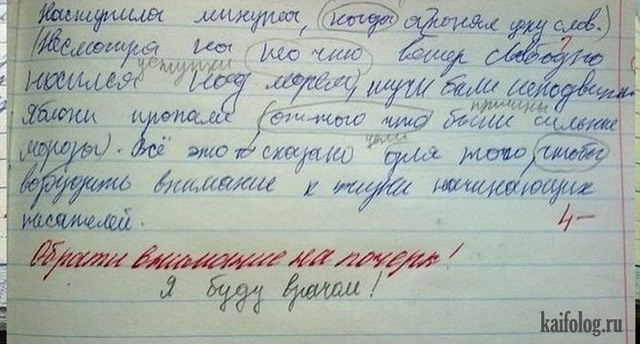 Наступила минута, (когда я понял цену слов.)
(Несмотря на то что ветер свободно
уступки
носился над морем), тучи были неподвижны.
причины
Яблони пропали (от того что были сильные
цели
морозы). Всё это сказано для того, чтобы
возбудить внимание к жизни начинающих
писателей.
4-
Обрати внимание на почерк!
Я буду врачом!
kaifolog.ru